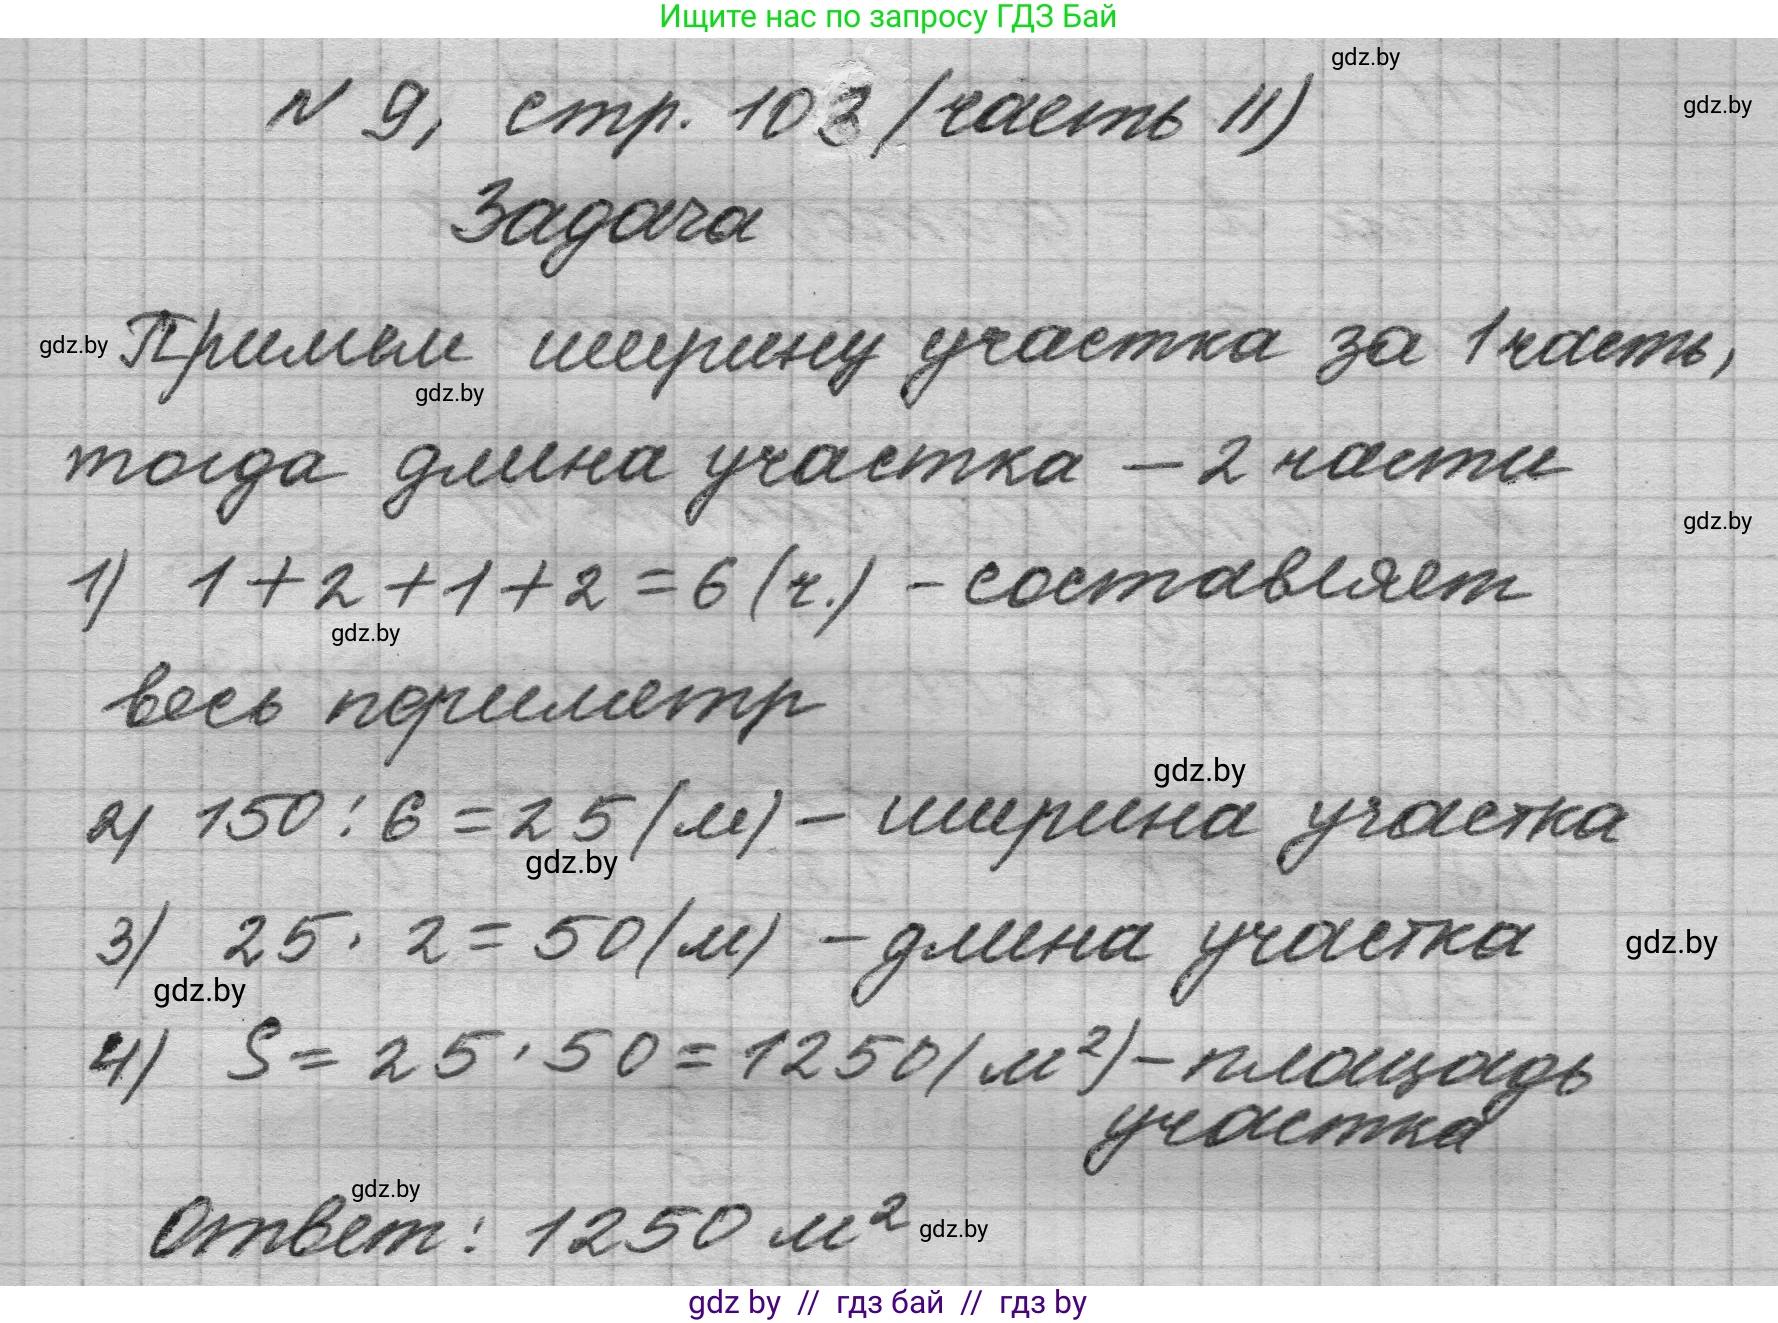 Ищите нас по запросу ГДЗ Бай
gdz.by
№ 9, стр. 103 (часть II)
gdz.by
Задача
gdz.by Примем ширину участка за 1 часть,
gdz.by
тогда длина участка – 2 части
gdz.by
1) 1 + 2 + 1 + 2 = 6 (ч.) – составляет
gdz.by
весь периметр
gdz.by
2) 150 : 6 = 25 (м) – ширина участка
gdz.by
3) 25 · 2 = 50 (м) – длина участка
gdz.by
gdz.by
4) S = 25 · 50 = 1250 (м²) – площадь
участка
gdz.by
Ответ: 1250 м²
gdz.by
gdz by // гдз бай // гдз by